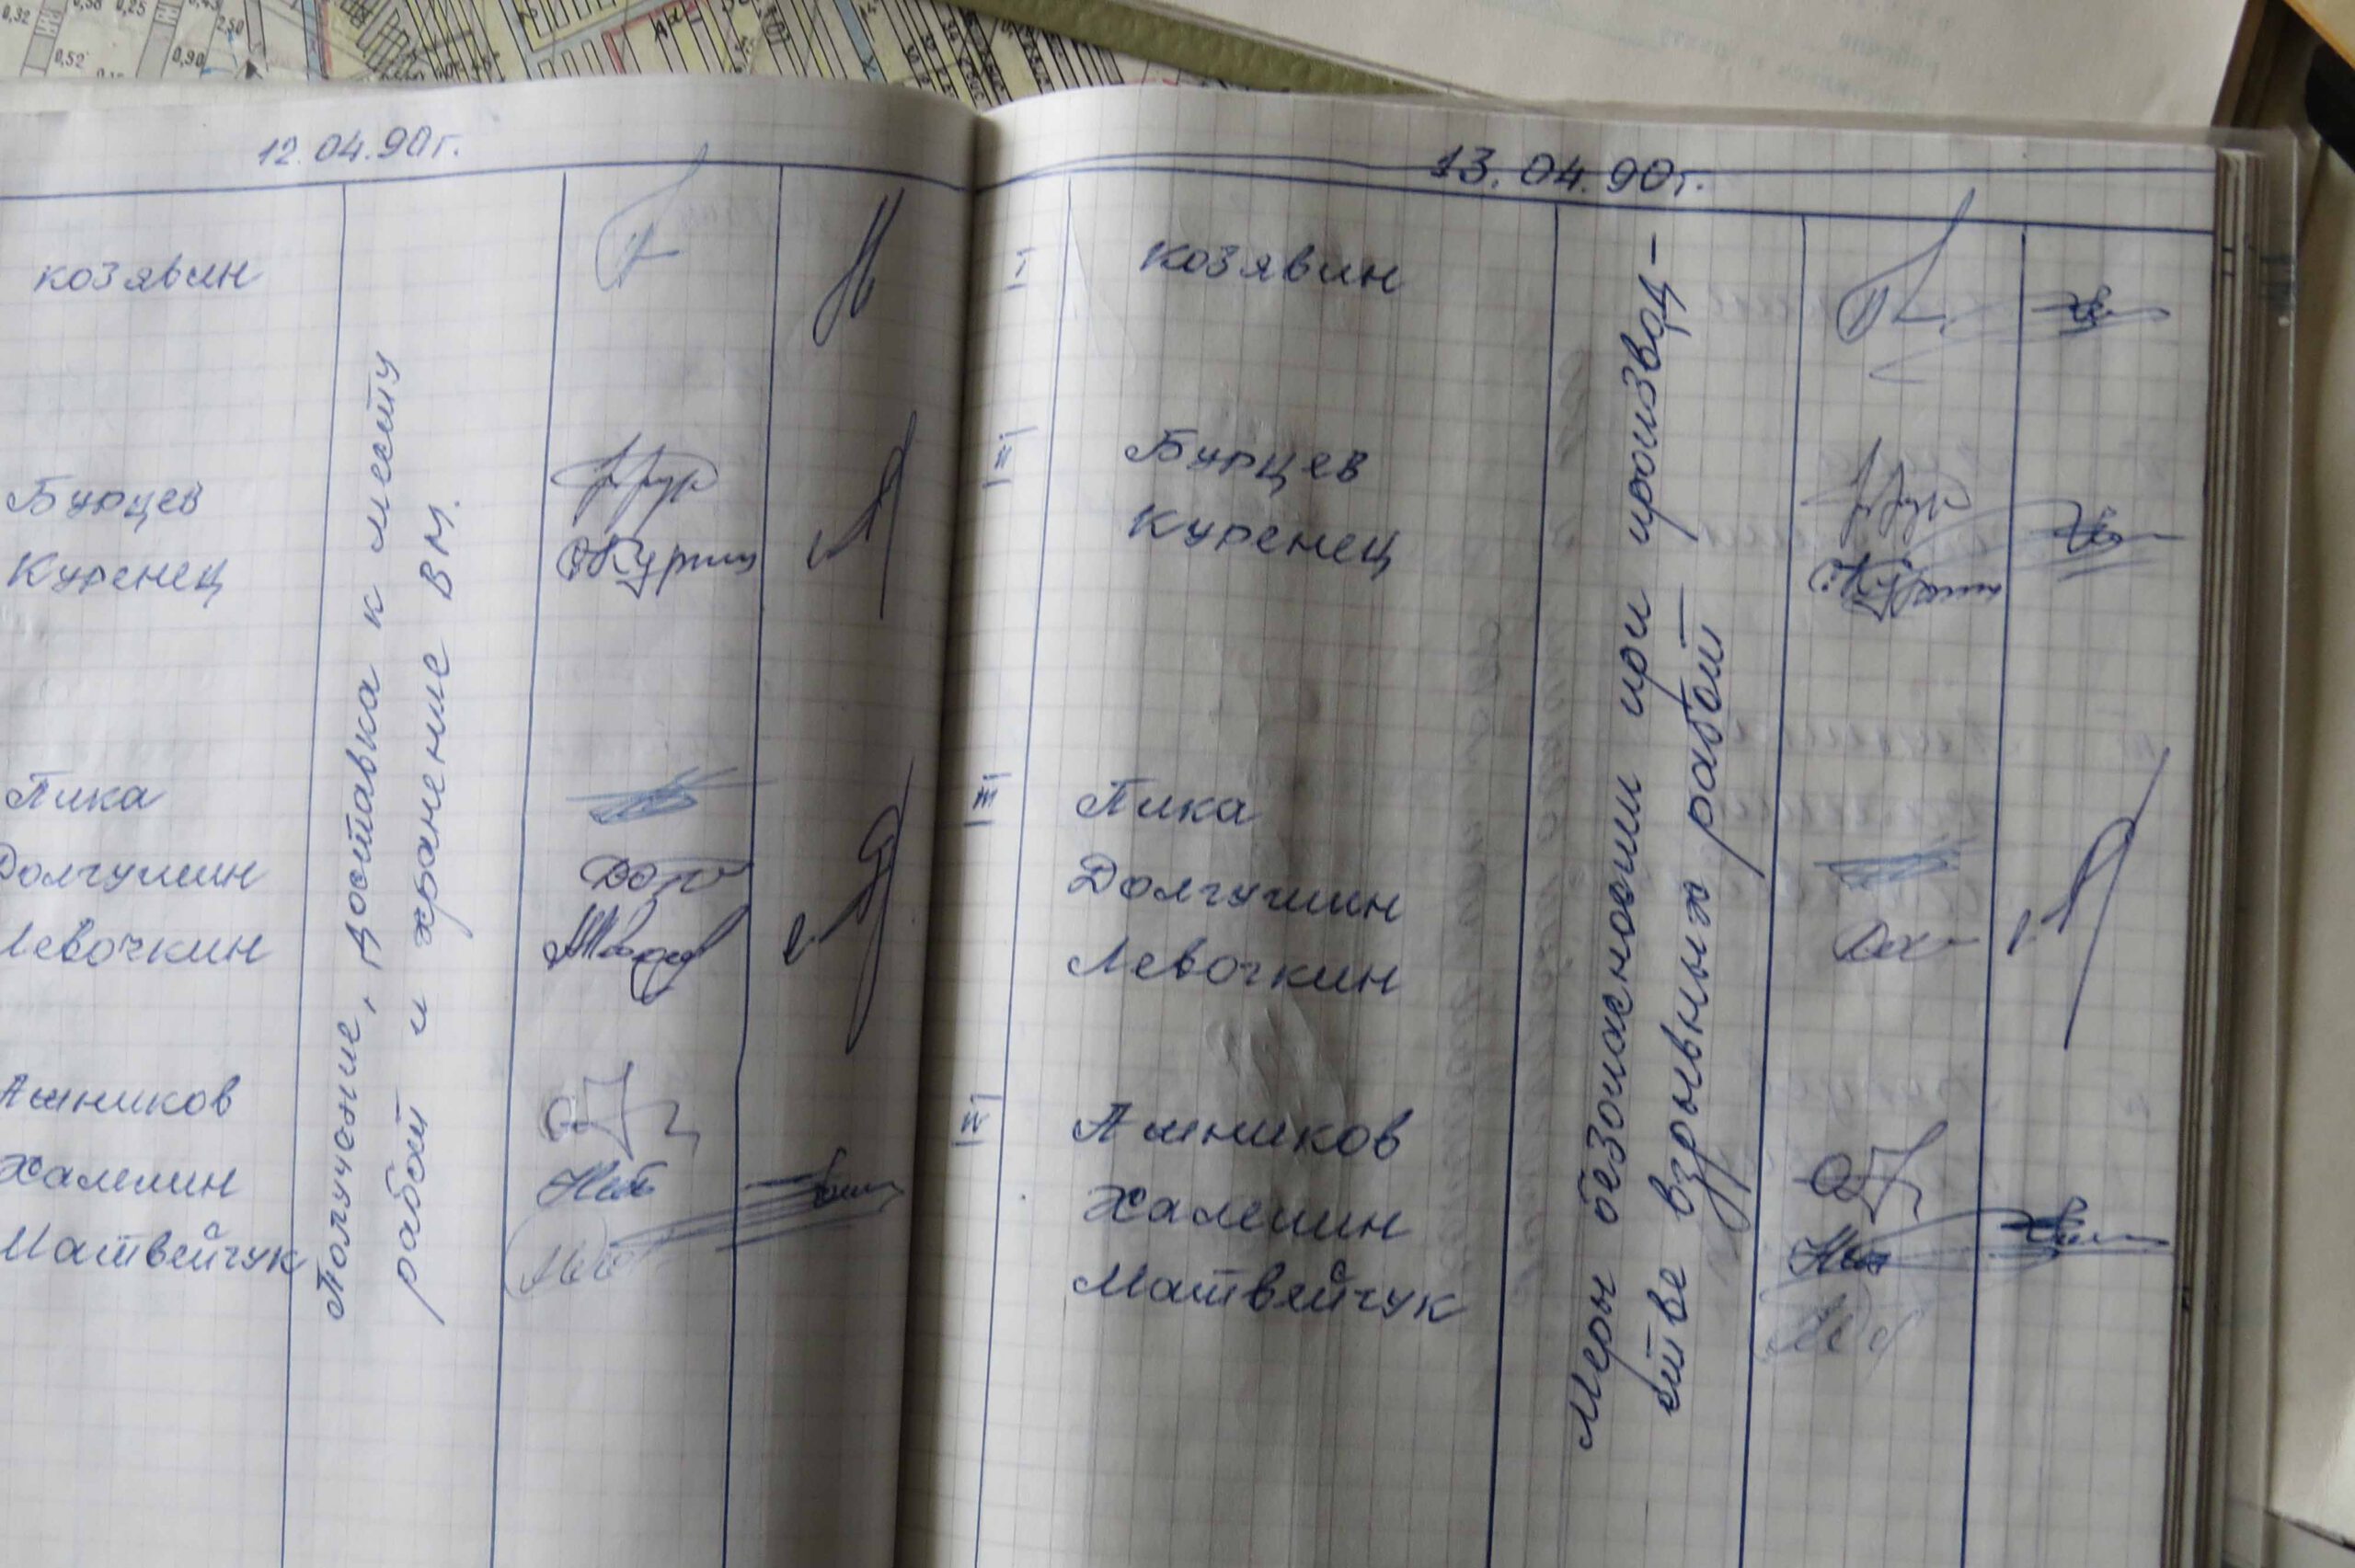 0,32
0,38
0,25
0,52
2,50
0,90
12.04.90г.
Козявин
Бурцев
Куренец
Пика
Долгушин
Левочкин
Ашников
Халепин
Матвейчук
Получение, доставка к месту
работ и хранение ВМ.
13.04.90г.
I
Козявин
II
Бурцев
Куренец
III
Пика
Долгушин
Левочкин
IV
Ашников
Халепин
Матвейчук
Меры безопасности при производ-
стве взрывных работ